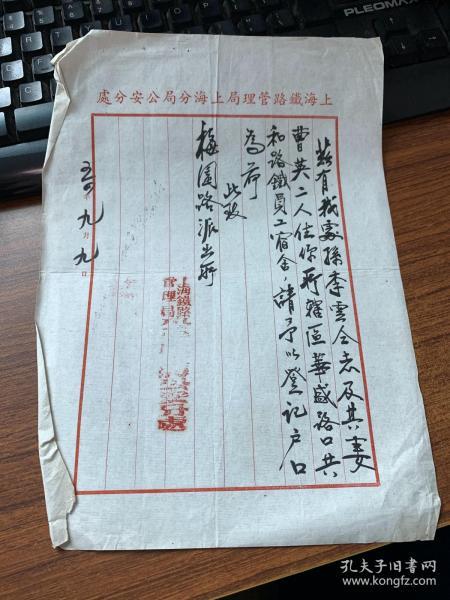 上海鐵路管理局上海分局公安分處
茲有我處孫李雲仝志及其妻
曹英二人住你所轄區華盛路口共
和路鐵員工宿舍,請予以登記户口
為荷
此致
梅園路派出所
海鐵路
管理局
公安分處
九月九日
PLEOMAX
孔夫子旧书网
www.kongfz.com